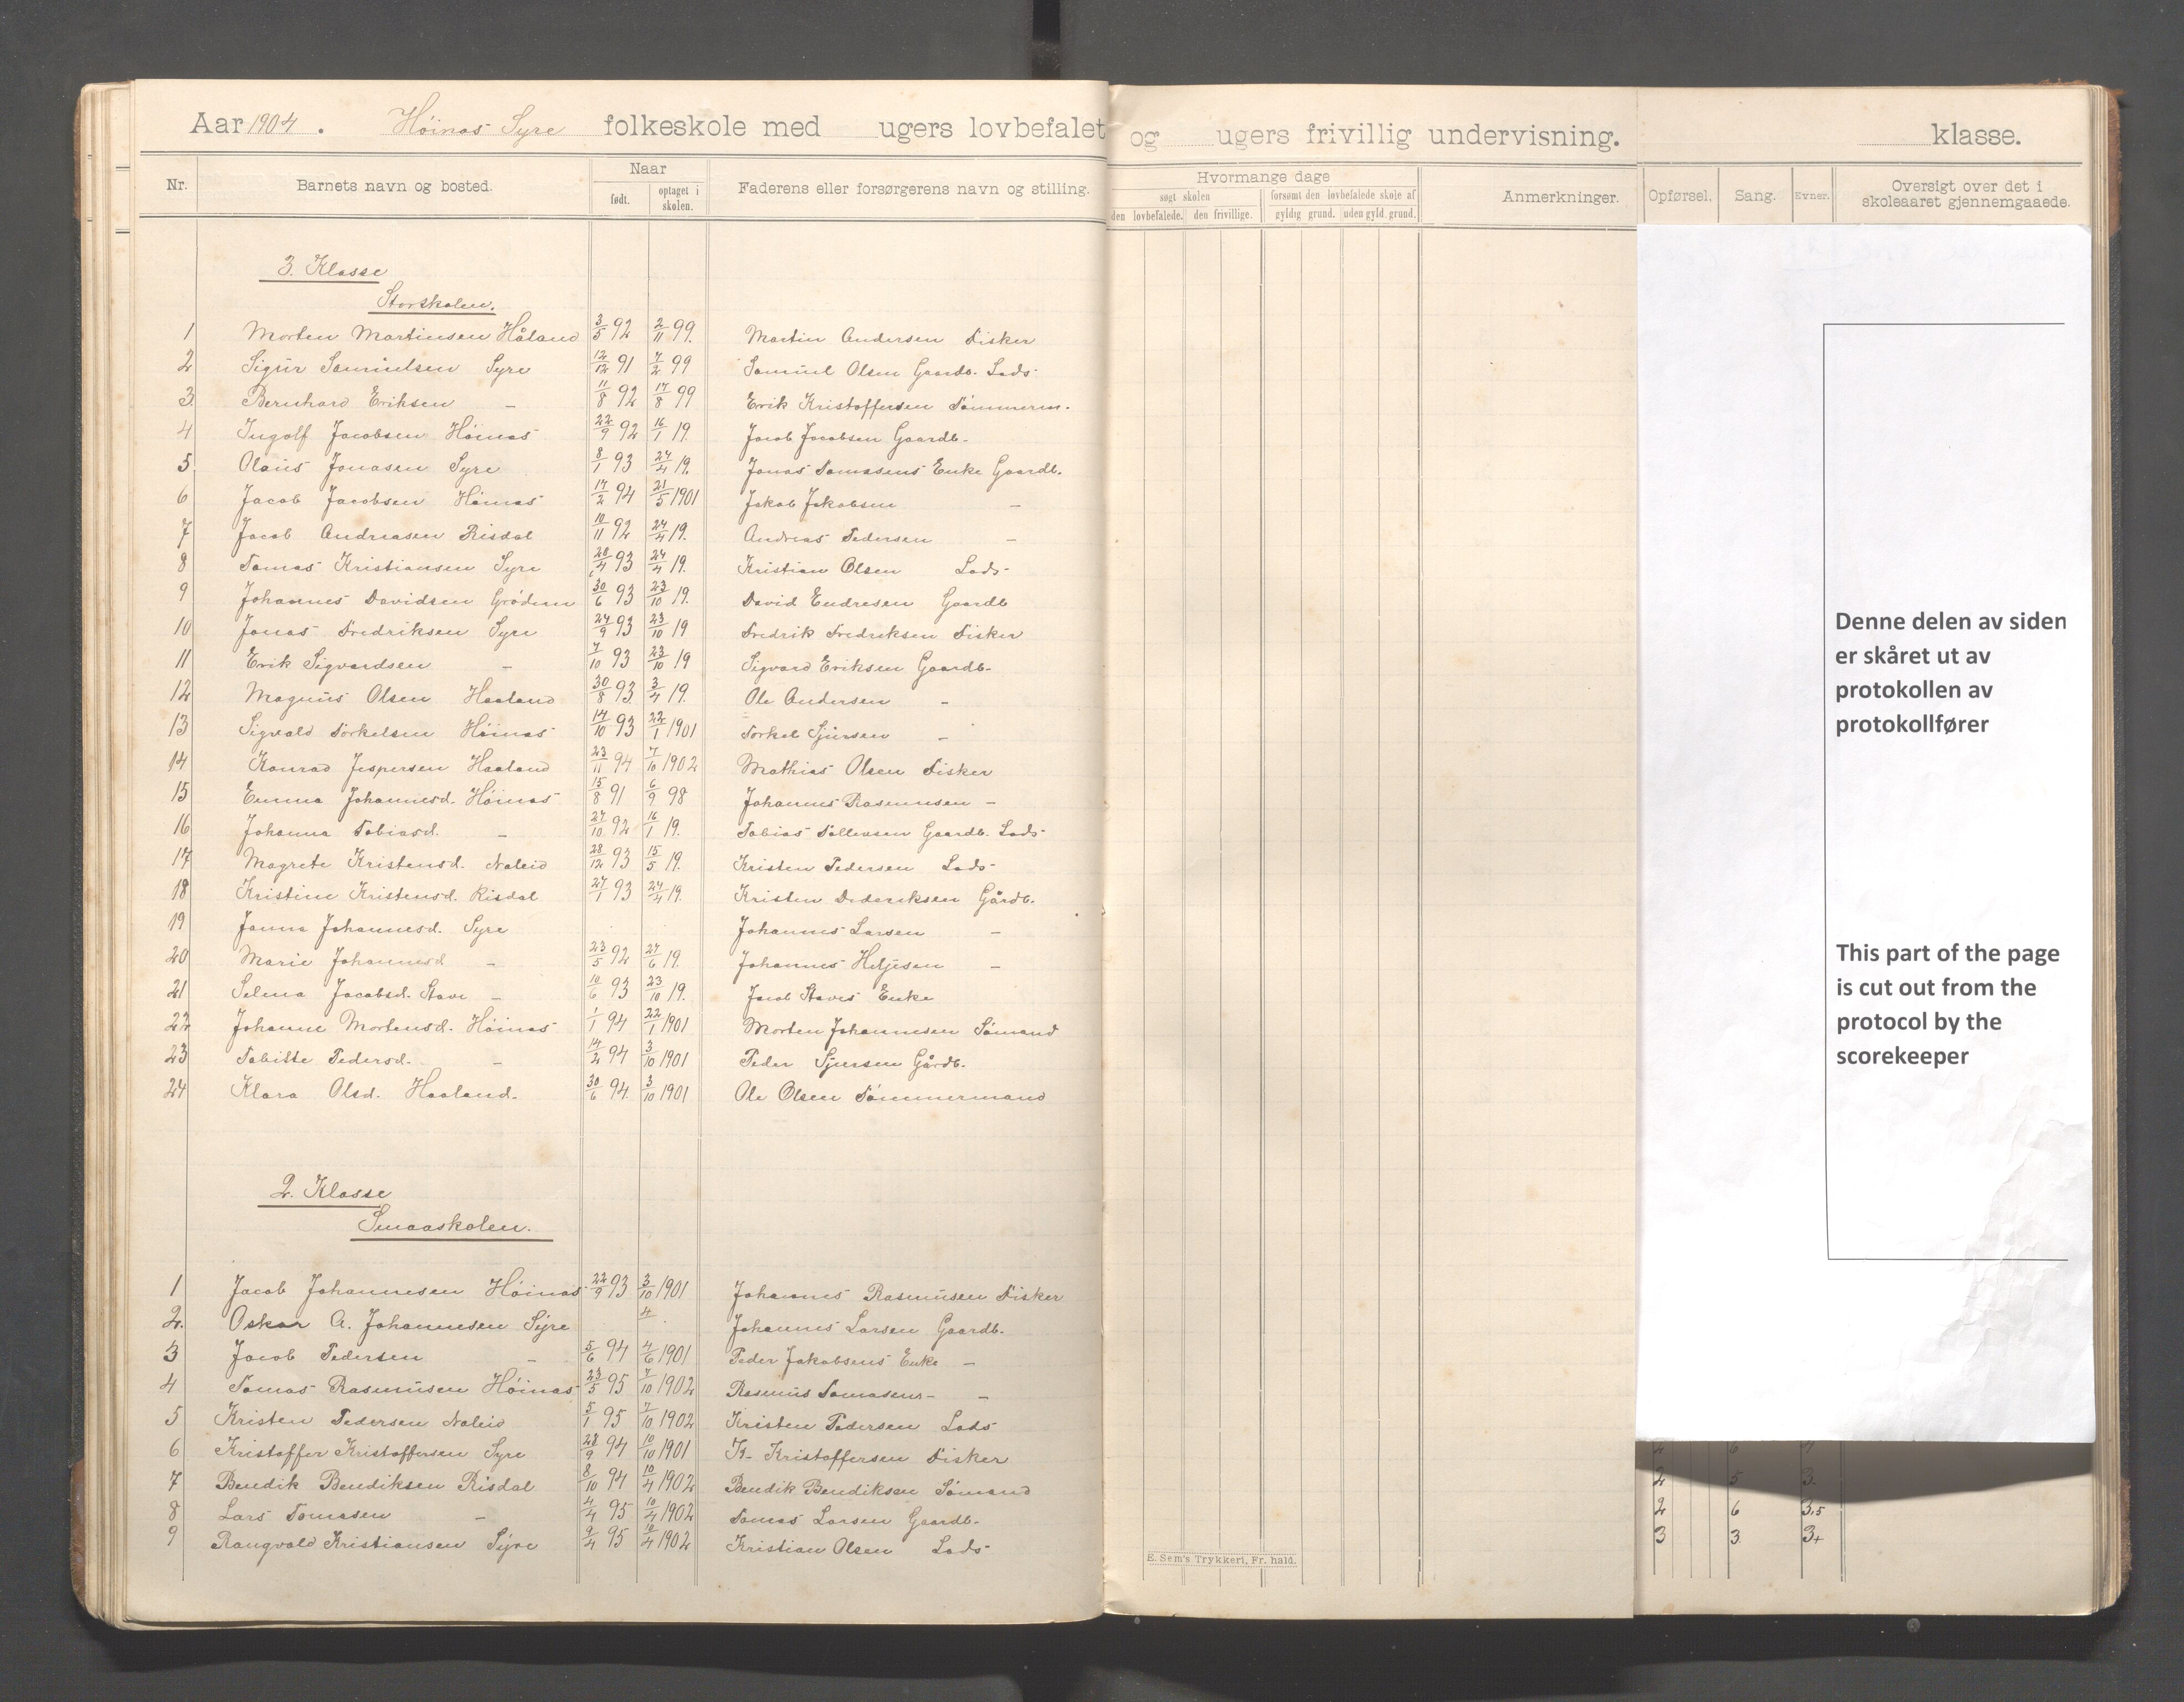 Aar 1904. Höinas Syre folkeskole med ugers lovbefalet og ugers frivillig undervisning. klasse.
Nr. Barnets navn og bosted. Naar født. optaget i skolen. Faderens eller forsørgerens navn og stilling. Hvormange dage søgt skolen den lovbefalede. den frivillige. forsømt den lovbefalede skole af gyldig grund. uden gyld. grund. Anmerkninger. Opførsel. Sang. Evner. Oversigt over det i skoleaaret gjennemgaaede.
3. Klasse
Storskolen.
1 Morten Martinsen Håland 3/5 92 2/11 99. Martin Andersen Fisker
2 Sigur Samuelsen Syre 12/12 91 7/2 99 Samuel Olsen Gaardb. Lods
3 Bernhard Eriksen – 11/8 92 17/8 99 Erik Kristoffersen Tømmerm.
4 Ingolf Jacobsen Höinas 22/9 92 16/1 19. Jacob Jacobsen Gaardb.
5 Olaus Jonasen Syre 8/1 93 24/4 19. Jonas Tomasens Enke Gaardb.
6 Jacob Jacobsen Höinas 17/2 94 21/5 1901 Jakob Jakobsen –
7 Jacob Andreasen Risdal 10/11 92 24/4 19. Andreas Pedersen –
8 Tomas Kristiansen Syre 20/4 93 24/4 19. Kristian Olsen Lods
9 Johannes Davidsen Grödem 30/6 93 23/10 19. David Endresen Gaardb
10 Jonas Fredriksen Syre 24/9 93 23/10 19 Fredrik Fredriksen Fisker
11 Erik Sigvardsen – 7/10 93 23/10 19 Sigvard Eriksen Gaardb.
12 Magnus Olsen Haaland 30/8 93 3/4 19. Ole Andersen –
13 Sigvald Torkelsen Höinas 14/10 93 22/1 1901 Torkel Sjursen –
14 Konrad Jespersen Haaland 23/11 94 7/10 1902 Mathias Olsen Fisker
15 Emma Johannesd. Höinas 15/8 91 6/9 98 Johannes Rasmussen –
16 Johanna Tobiasd. – 27/10 92 16/1 19. Tobias Tollevsen Gaardb. Lods
17 Magrete Kristensd. Naleid 28/12 93 15/5 19. Kristen Pedersen Lods
18 Kristine Kristensd. Risdal 27/1 93 24/4 19. Kristen Dideriksen Gårdb.
19 Janna Johannesd. Syre Johannes Larsen –
20 Marie Johannesd – 23/5 92 27/6 19. Johannes Heljesen –
21 Selma Jacobsd. Stave – 10/6 93 23/10 19. Jacob Staves Enke
22 Johanne Mortensd. Höinas 1/1 94 22/1 1901 Morten Johannesen Sömand
23 Tobitte Pedersd. – 14/2 94 3/10 1901 Peder Sjursen Gårdb.
24 Klara Olsd. Haaland. 30/6 94. 3/10 1901 Ole Olsen Tömmermand
2. Klasse
Smaaskolen.
1 Jacob Johannesen Höinas 22/9 93 3/10 1901 Johannes Rasmusen Fisker
2. Oskar A. Johannesen Syre 4/ Johannes Larsen Gaardb.
3 Jacob Pedersen – 5/6 94 4/6 1901 Peder Jakobsens Enke –
4 Tomas Rasmusen Höinas 23/5 95 7/10 1902 Rasmus Tomasens – –
5 Kristen Pedersen Naleid 5/1 95 7/10 1902 Kristen Pedersen Lods
6 Kristoffer Kristoffersen Syre 28/9 94 10/10 1901 K. Kristoffersen Fisker
7 Bendik Bendiksen Risdal 8/10 94 10/4 1902 Bendik Bendiksen Sömand 2 5 3.
8 Lars Tomasen – 4/4 95 10/4 1902 Tomas Larsen Gaardb. 2 6 3,5
9 Rangvald Kristiansen Syre 9/4 95 10/4 1902 Kristian Olsen Lods 3 3 3+
E. Sem's Trykkeri, Fr. hald.
Denne delen av siden
er skåret ut av
protokollen av
protokollfører
This part of the page
is cut out from the
protocol by the
scorekeeper